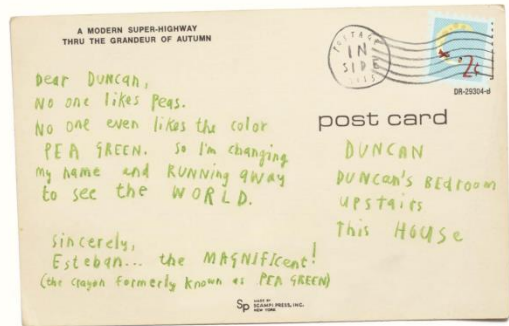 A MODERN SUPER-HIGHWAY
THRU THE GRANDEUR OF AUTUMN
Dear Duncan,
No one likes Peas.
No one even likes the color
PEA GREEN. So I'm changing
my name and RUNNING away
to see the WORLD.
Sincerely,
Esteban... the MAGNIFicent!
(the crayon formerly known as PEA GREEN)
POSTAGE
IN
2¢
DR-29304-d
post card
DUNCAN
DUNCAN'S BEDroom
upstairs
this House
Sp MADE BY
SCAMPI PRESS, INC.
NEW YORK